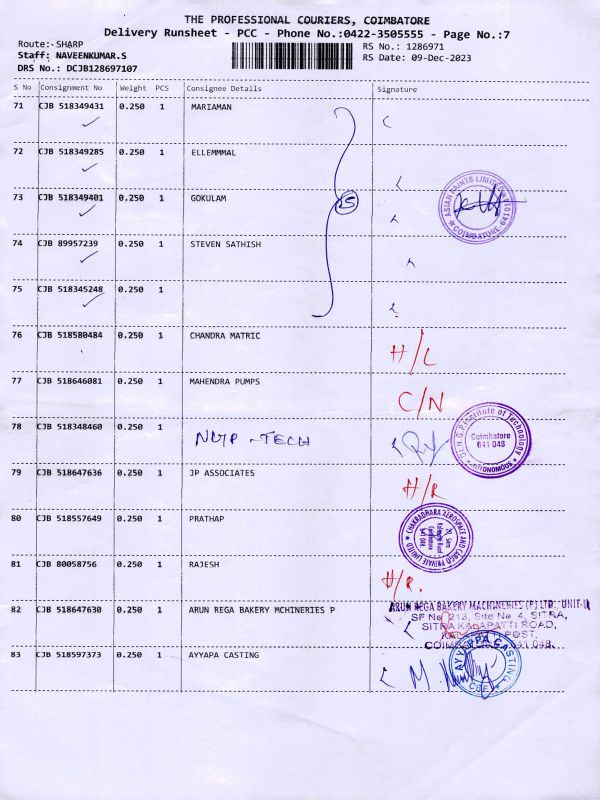 THE PROFESSIONAL COURIERS, COIMBATORE
Delivery Runsheet - PCC - Phone No.:0422-3505555 - Page No.:7
Route: SHARP
RS No.: 1286971
Staff: NAVEENKUMAR.S
RS Date: 09-Dec-2023
DRS No.: DCJB128697107
S No Consignment No Weight PCS Consignee Details Signature
71 CJB 518349431 0.250 1 MARIAMAN
72 CJB 518349285 0.250 1 ELLEMMMAL
73 CJB 518349401 0.250 1 GOKULAM
5
ASIAN PAINTS LIMITED
COIMBATORE-641014
74 CJB 89957239 0.250 1 STEVEN SATHISH
75 CJB 518345248 0.250 1
76 CJB 518580484 0.250 1 CHANDRA MATRIC H/L
77 CJB 518646081 0.250 1 MAHENDRA PUMPS C/N
78 CJB 518348460 0.250 1 NGP - TECH
Dr. N.G.P. Institute of Technology
Coimbatore
641 048
AUTONOMOUS
79 CJB 518647636 0.250 1 JP ASSOCIATES H/R
80 CJB 518557649 0.250 1 PRATHAP
CHAKRADHARA AEROSPACE AND CARGO PRIVATE LIMITED
81 CJB 80058756 0.250 1 RAJESH H/R.
82 CJB 518647630 0.250 1 ARUN REGA BAKERY MCHINERIES P
ARUN REGA BAKERY MACHINERIES (P) LTD., UNIT-II
SF No. 213, Site No. 4, SITRA,
SITRA KALAPATTI ROAD,
POST,
COIMBATORE 641 048.
83 CJB 518597373 0.250 1 AYYAPA CASTING
AYYAPPA CASTING
CBE